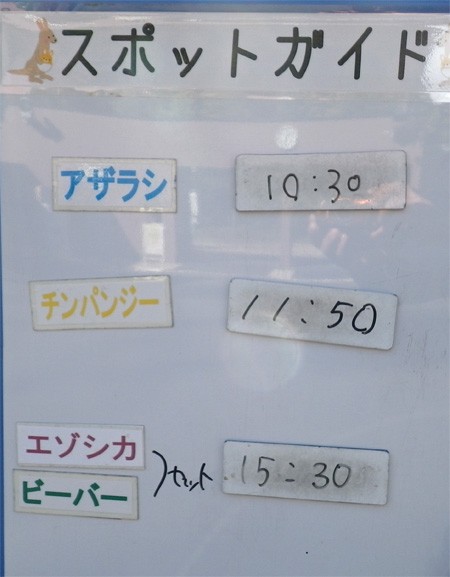 スポットガイド
アザラシ 10:30
チンパンジー 11:50
エゾシカ
ビーバー
セット 15:30